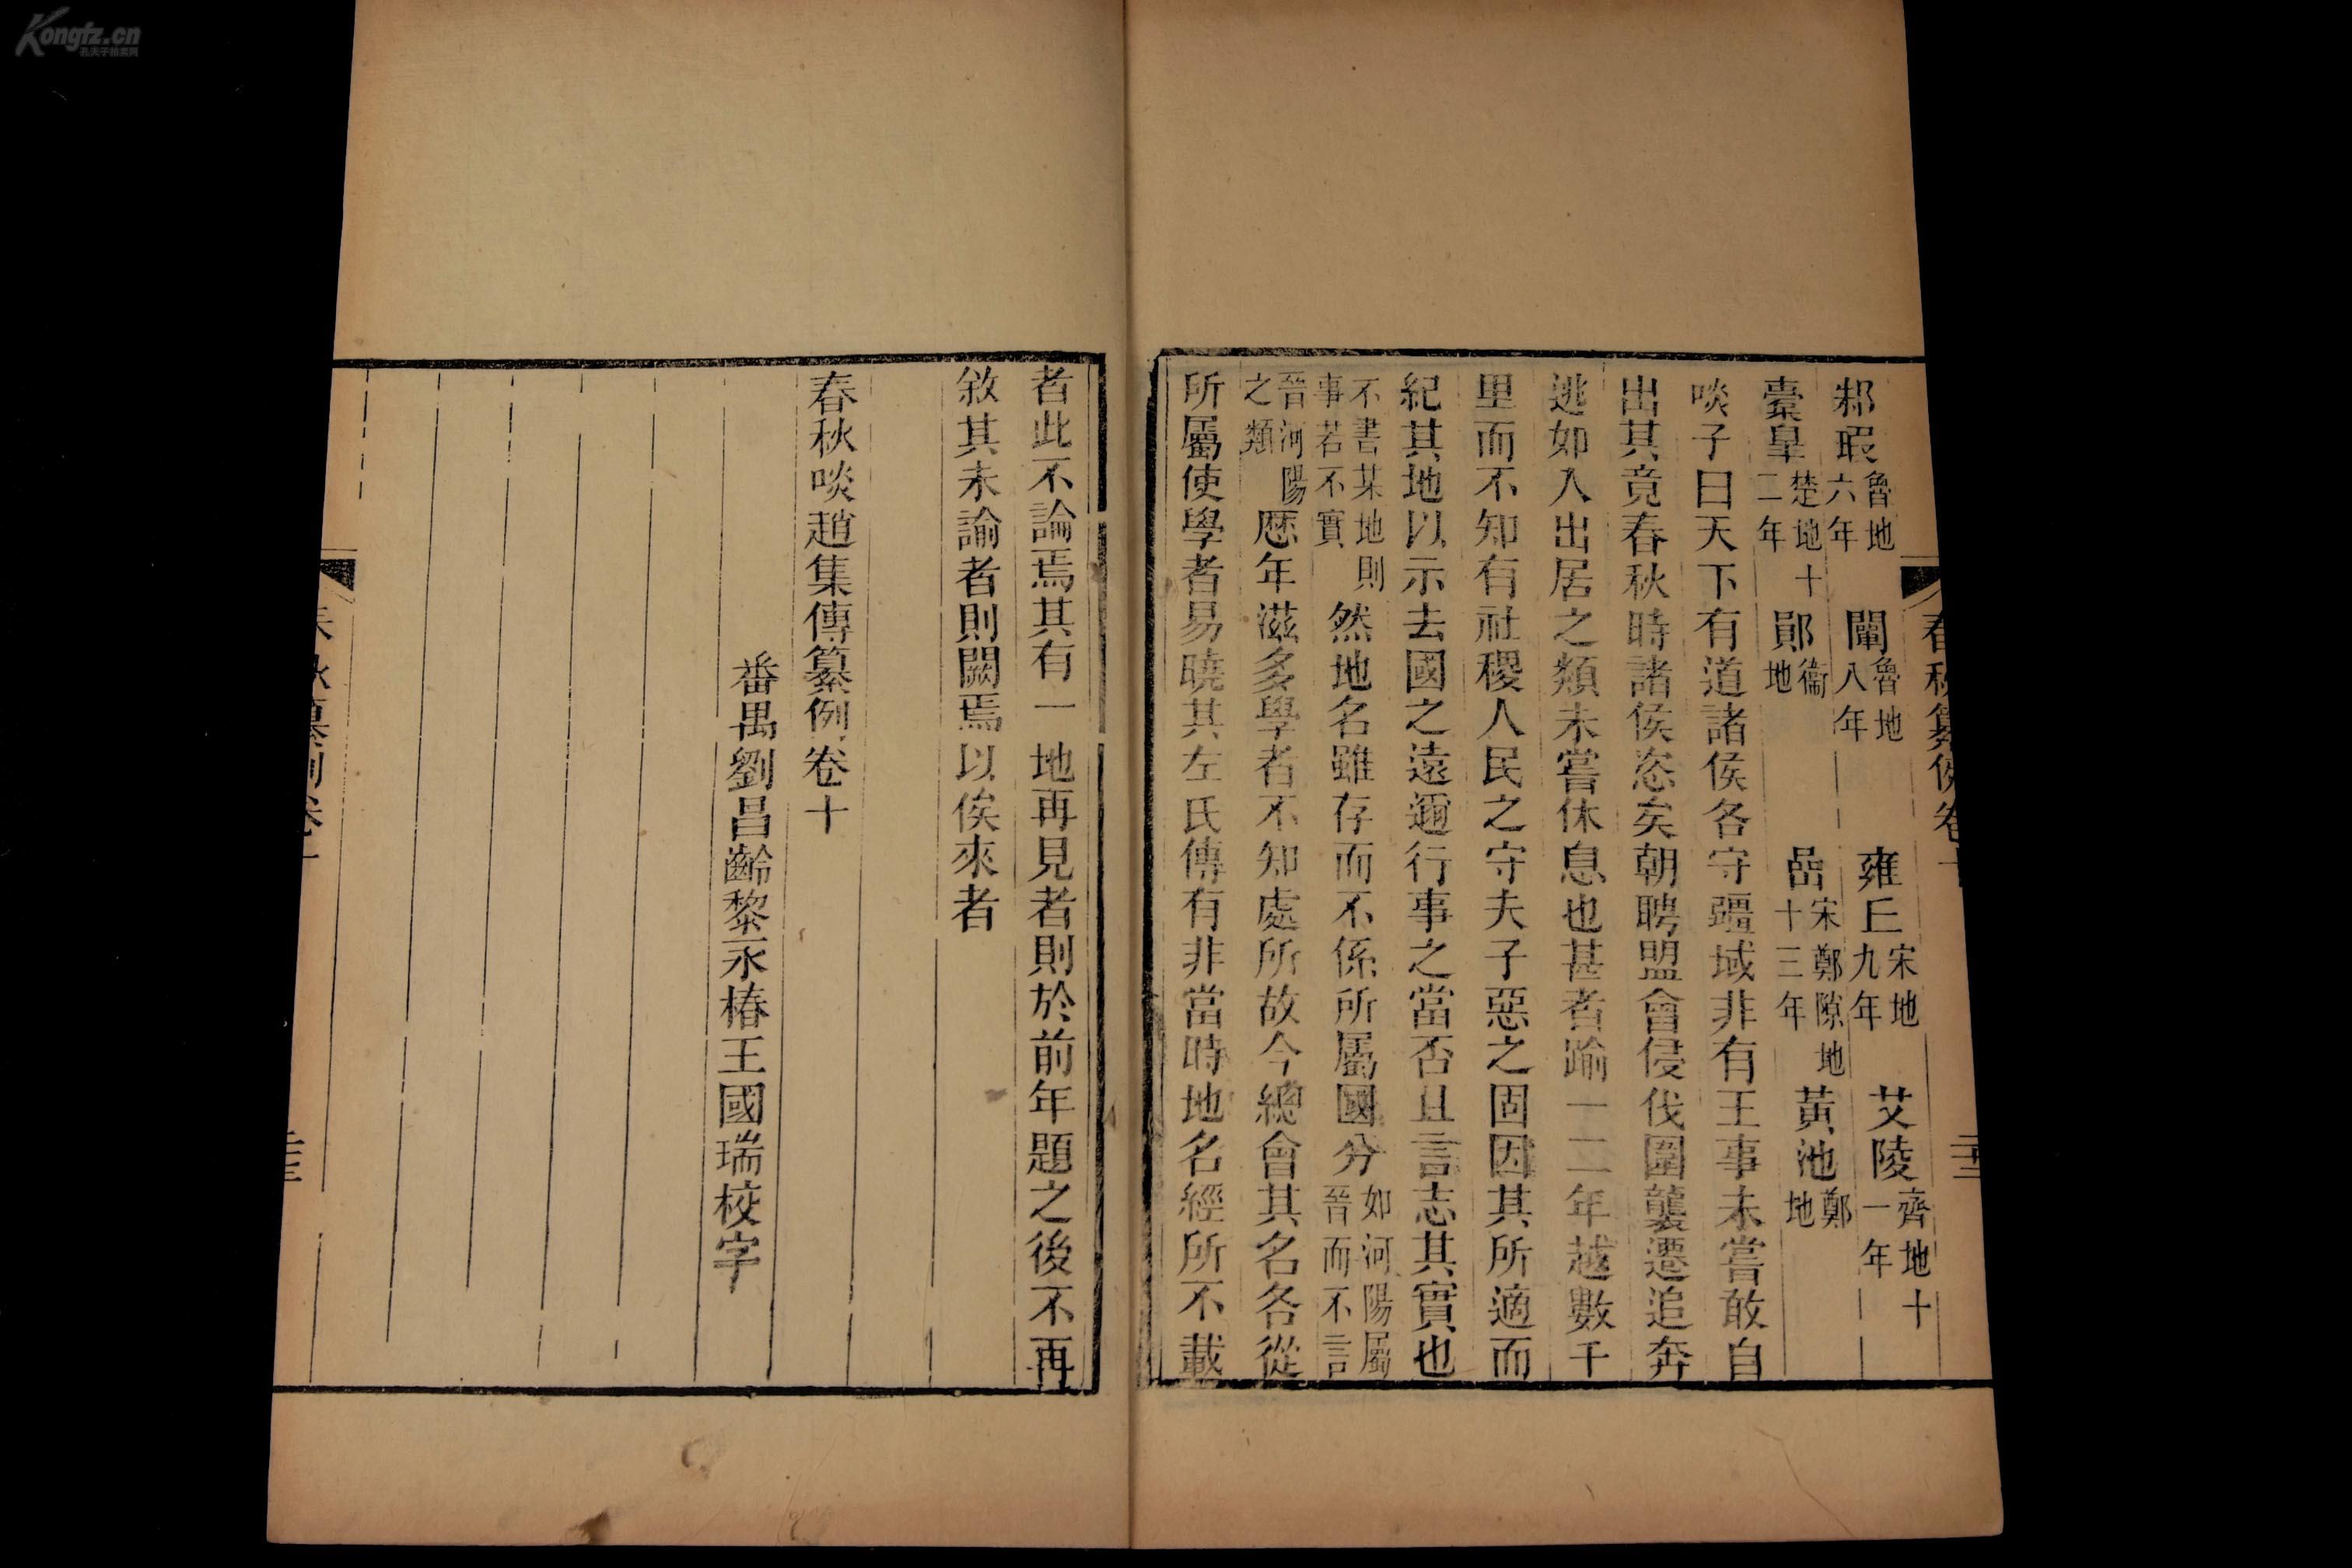 邾瑕魯地六年 闡魯地八年 雍丘宋地九年 艾陵齊地十一年
橐皐楚地十二年 鄖衞地 嵒宋鄭隙地十三年 黃池鄭地
啖子曰天下有道諸侯各守疆域非有王事未嘗敢自
出其竟春秋時諸侯恣矣朝聘盟會侵伐圍襲遷追奔
逃如入出居之類未嘗休息也甚者踰一二年越數千
里而不知有社稷人民之守夫子惡之固因其所適而
紀其地以示去國之遠邇行事之當否且言志其實也
不書某地則事若不實然地名雖存而不係所屬國分如河陽屬晉而不言
晉河陽之類歷年滋多學者不知處所故今總會其名各從
所屬使學者易曉其左氏傳有非當時地名經所不載
者此不論焉其有一地再見者則於前年題之後不再
敘其未諭者則闕焉以俟來者
春秋啖趙集傳纂例卷十
番禺劉昌齡黎永椿王國瑞校字
春秋纂例卷十
Kongfz.cn
孔夫子拍卖网